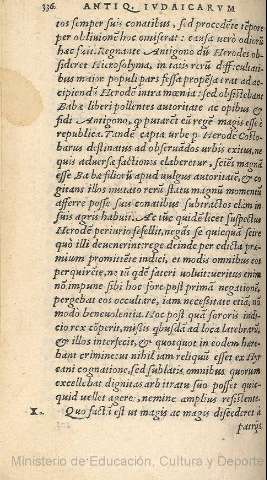 336. ANTIQ. IVDAICARVM
tos semper suis conatibus, sed procedẽte tẽpore
per obliuionẽ hoc omiserat: causa verò odiorũ
hæc fuit. Regnante Antigono dũ Herodes ob-
sideret Hierosolyma, in tatis rerũ difficultati-
bus maior populi pars fessa propẽsa erat ad ac-
cipiendũ Herodẽ intra mœnia: sed obsistebant
Babæ liberi pollentes autoritate ac opibus &
fidi Antigono, q̃ putarẽt eũ regẽ magis esse è
republica. Tandẽ capta vrbe p. Herodẽ Costo-
barus destinatus ad obseruãdos vrbis exitus, ne
quis aduersæ factionis elaberetur, sciẽs magnã
esse Babæ filiorũ apud vulgus autoritatẽ, & co
gitans illos mutato rerũ statu magnũ momentũ
afferre posse suis conatibus subtractos clam in
suis agris habuit. Ac tũc quidẽ licet suspectus
Herodẽ periurio fefellit, negãs se quicquã scire
quò illi deuenerint: rege deinde per edicta præ-
mium promittẽte indici, et modis omnibus eos
perquirẽte, ne iã qdẽ fateri voluit: veritus enim
nõ impune sibi hoc fore post primã negationẽ,
pergebat eos occultare, iam necessitate etiã, nõ
modo beneuolentia. Hoc post quã sororis indi-
cio rex cõperit, missis qbusdã ad loca latebrarũ,
& illos interfecit, & quotquot in eodem hære-
bant crimine: ut nihil iam reliquũ esset ex Hyr
cani cognatione, sed sublatis omnibus quorum
excellebat dignitas arbitratu suo posset quic-
quid vellet agere, nemine amplius resistente.
X. Quo facti est ut magis ac magis discederet à
patrijs
Ministerio de Educación, Cultura y Deporte